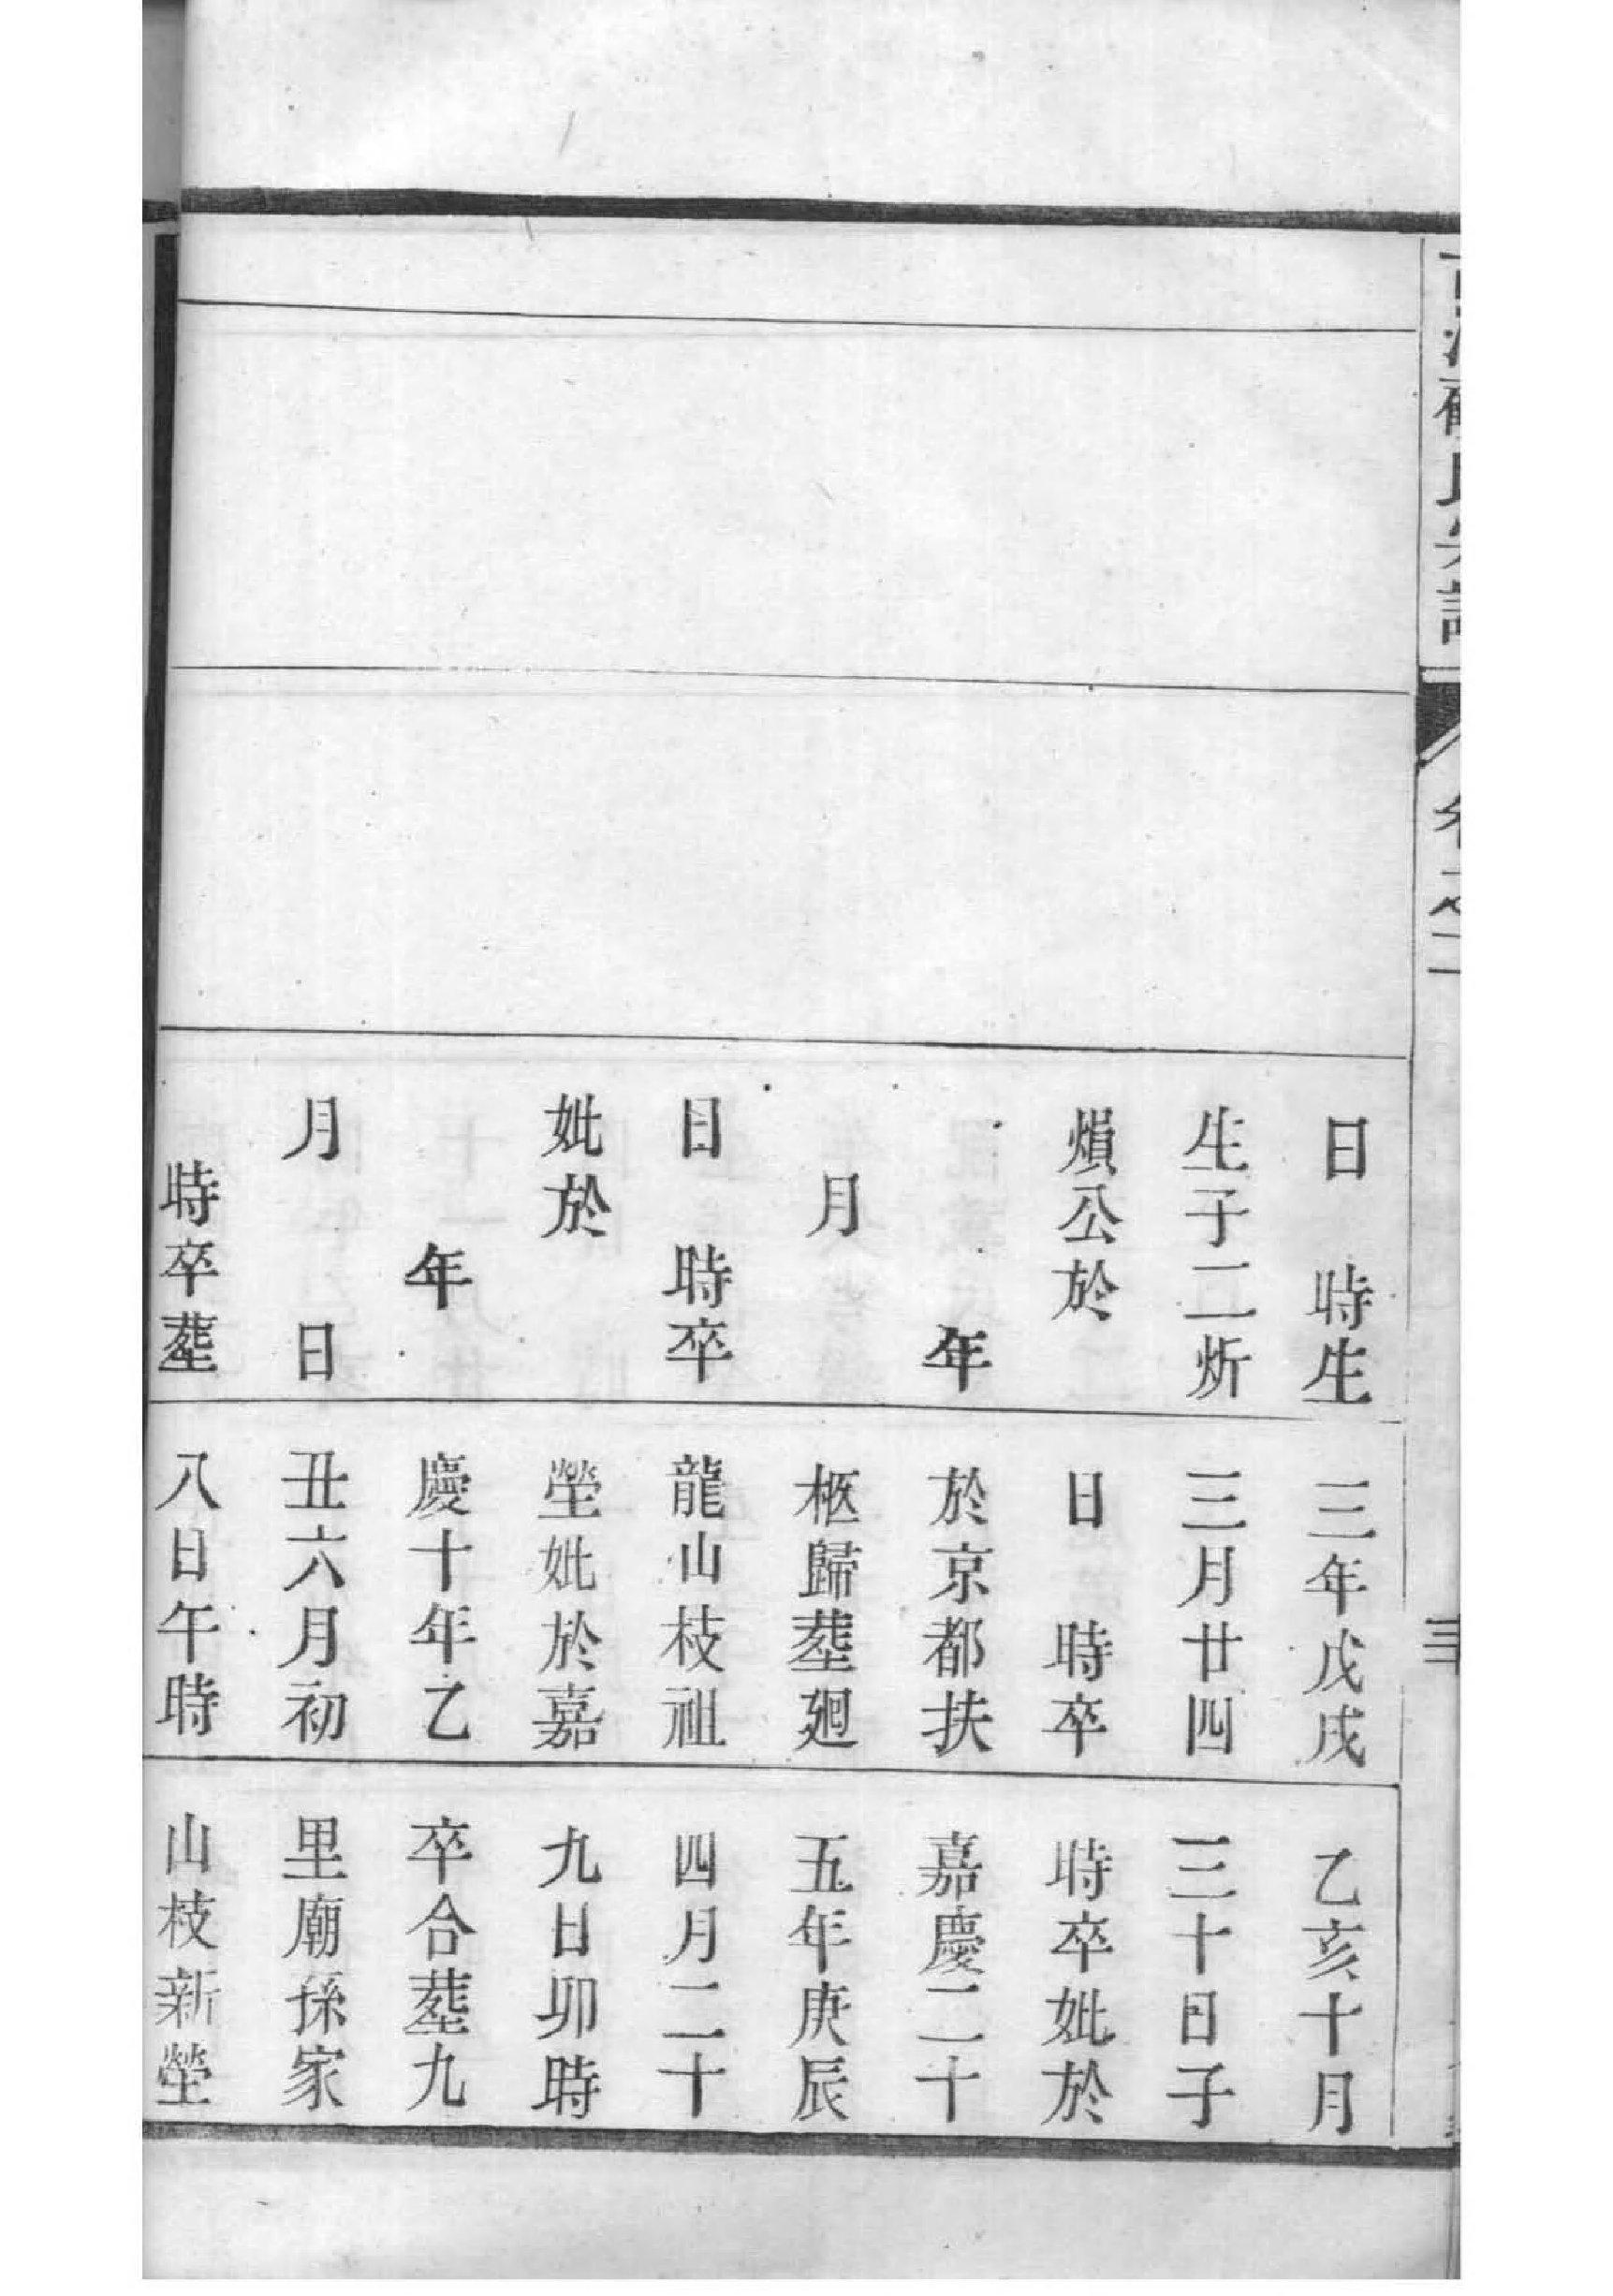 蘇氏宗譜
卷之二
日　時生
生子二炘
熉公於
年
月
日　時卒
妣於
年
月　日
時卒葬
三年戊戌
三月廿四
日　時卒
於京都扶
柩歸葬廻
龍山枝祖
塋妣於嘉
慶十年乙
丑六月初
八日午時
乙亥十月
三十日子
時卒妣於
嘉慶二十
五年庚辰
四月二十
九日卯時
卒合葬九
里廟孫家
山枝新塋